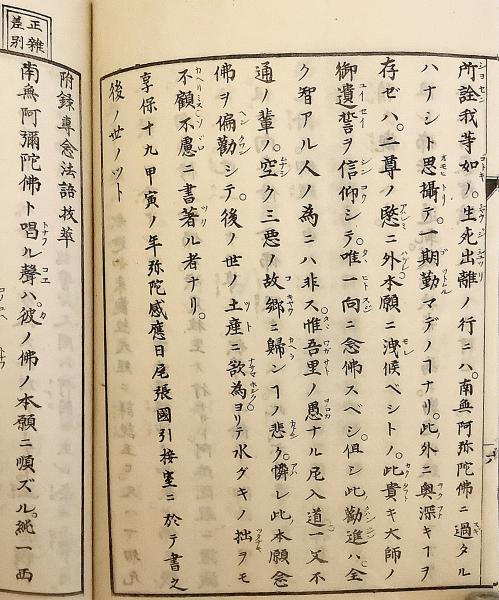 所詮我等如ノ生死出離ノ行ニハ南無阿弥陀佛ニ過タル
ハナシト思攝テ一期勤マデノヿナリ此外ニ奥深キヿヲ
存ゼハ二尊ノ愍ニ外本願ニ洩候ベシトノ此貴キ大師ノ
御遺誓ヲ信仰シテ唯一向ニ念佛スベシ但シ此勸進ハ全
ク智アル人ノ為ニハ非ス惟吾里ノ愚ナル尼入道一文不
通ノ輩ノ空ク三悪ノ故郷ニ歸ンヿノ悲ク憐レ此本願念
佛ヲ偏勸シテ後ノ世ノ土産ニ欲為ヨリテ水グキノ拙ヲモ
不顧不慮ニ書著ル者ナリ
享保十九甲寅ノ年弥陀感應日尾張國引接室ニ於テ書之
後ノ世ノツト
正雜
差別
附録專念法語拔萃
南無阿彌陀佛ト唱ル聲ハ彼ノ佛ノ本願ニ順ズル純一西